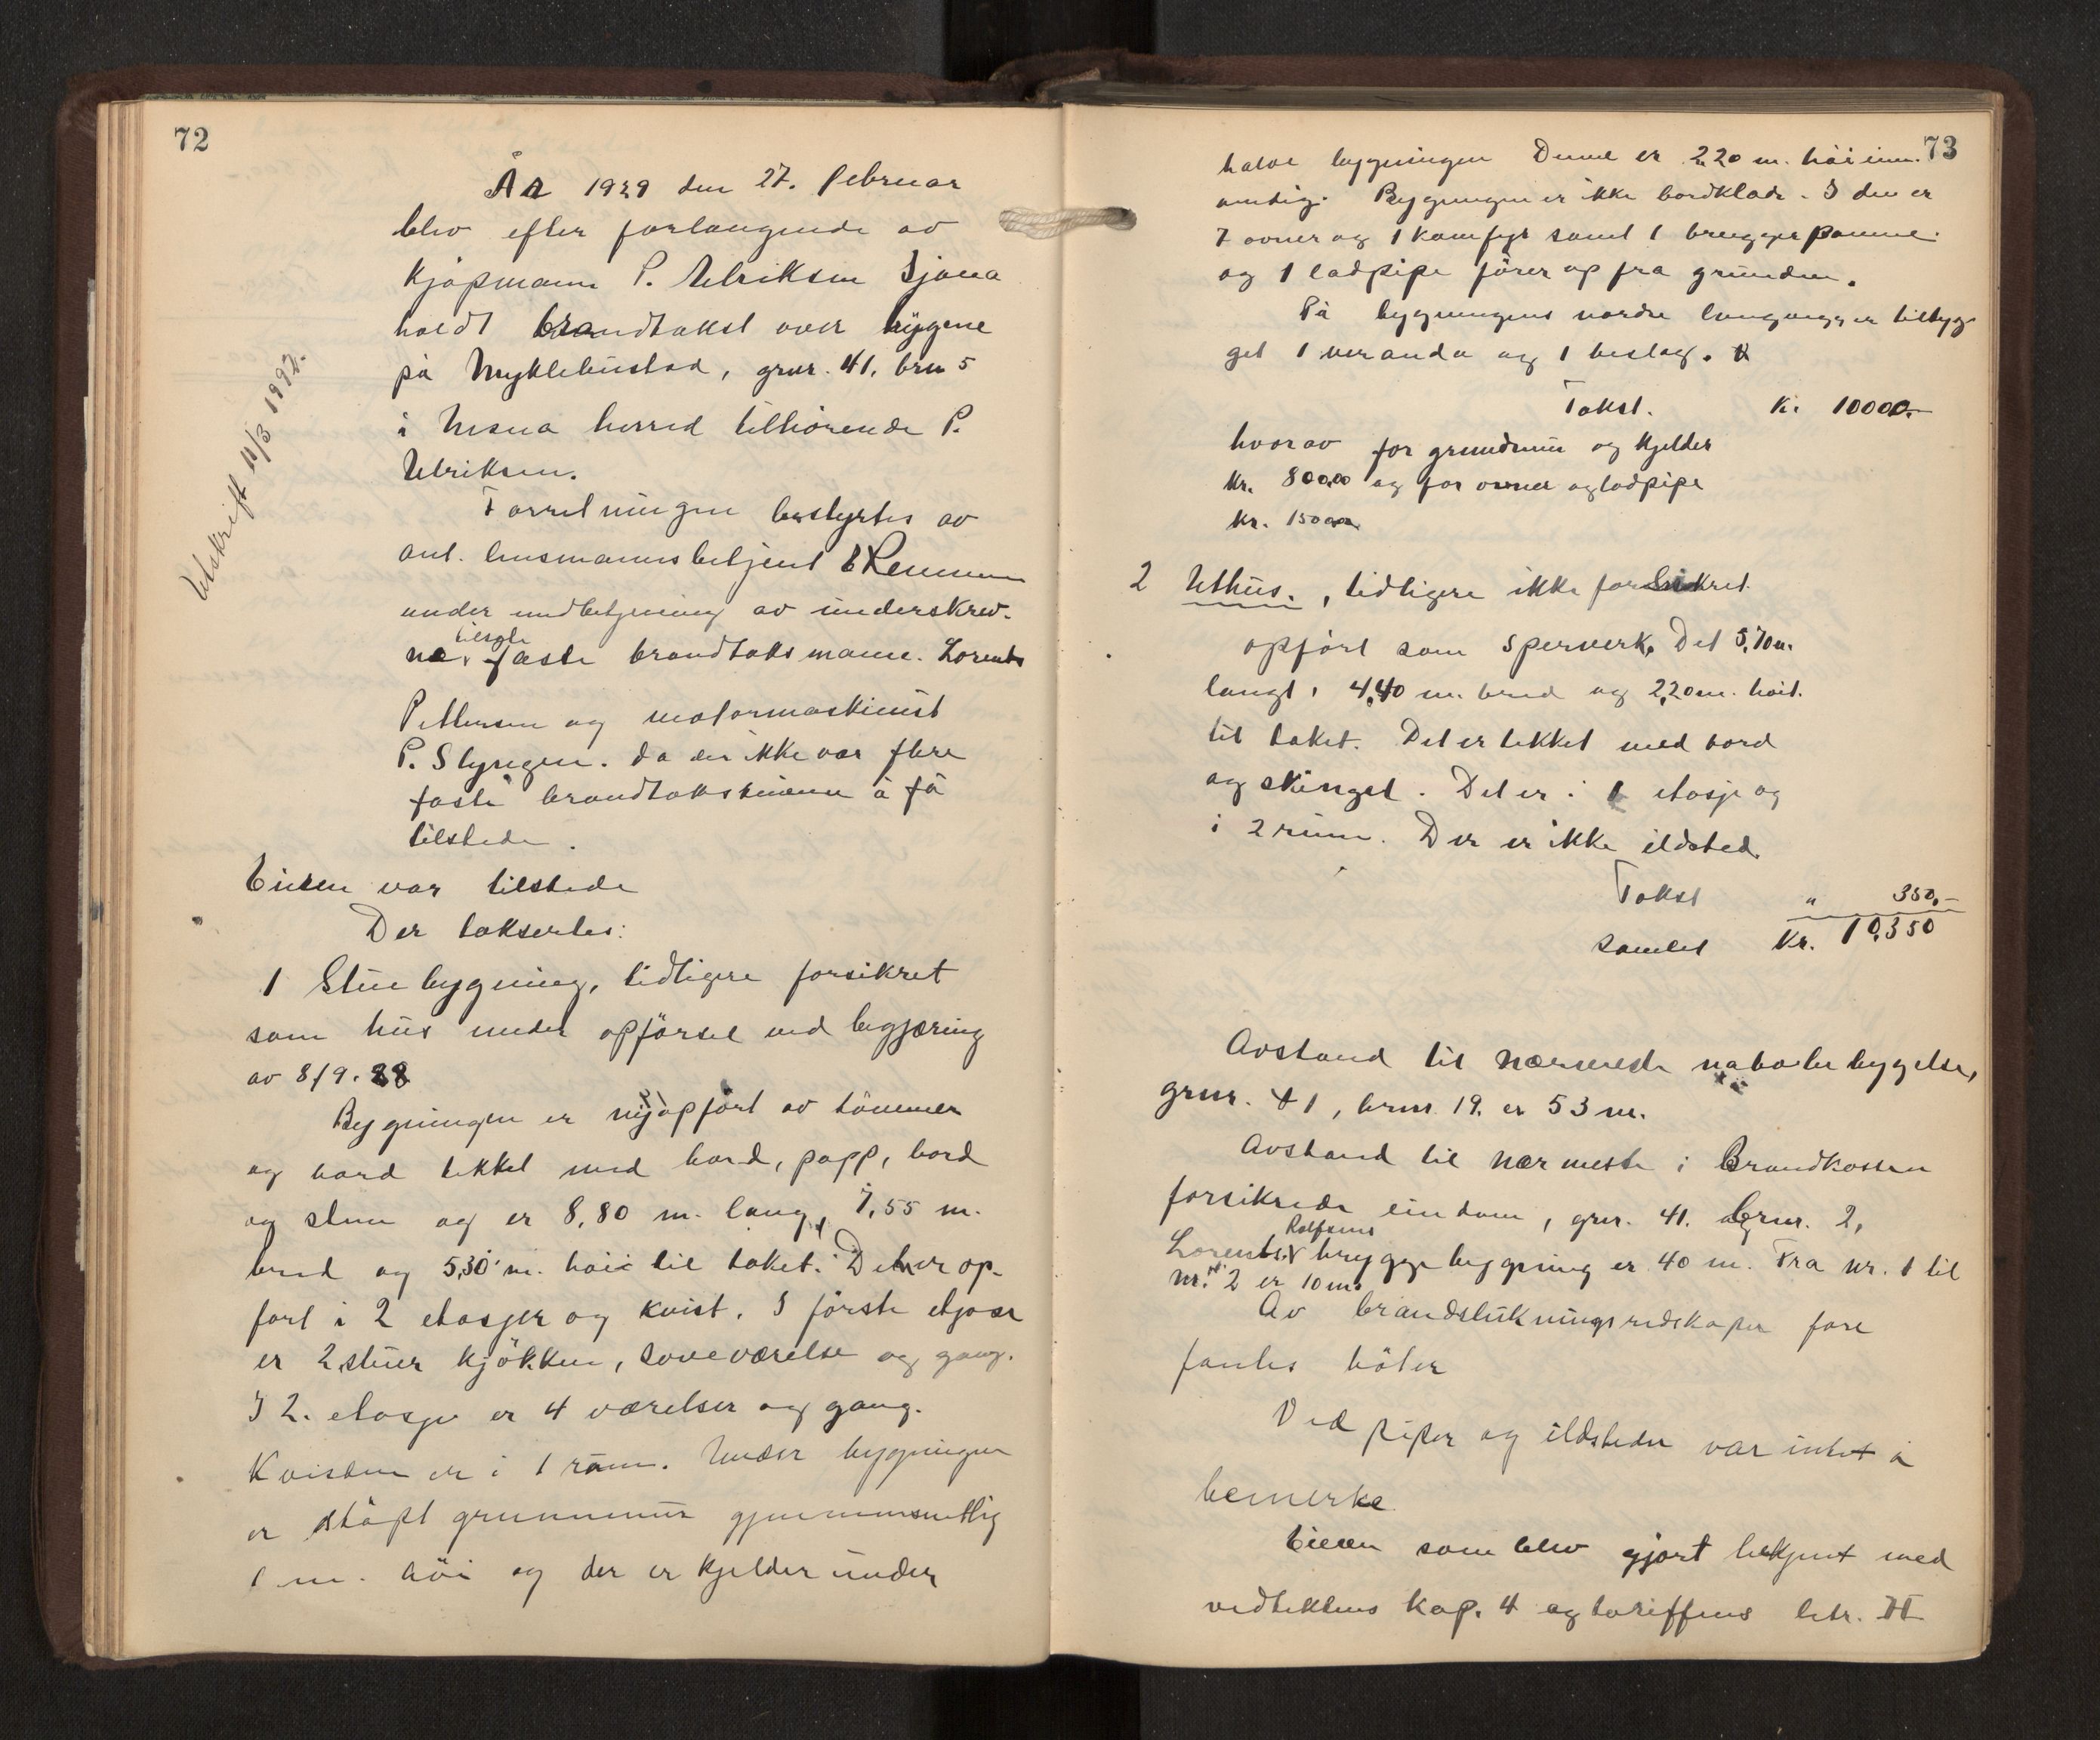 72
År 1929 den 27. februar
blev efter forlangende av
kjøpmann P. Ulriksen Sjona
holdt brandtakst over byggene
på Myklebustad, grnr. 41, brn 5
i Nesna herred tilhørende P.
Ulriksen.
Utskrift 11/3 1992.
Forretningen bestyrtes av
ant. lensmannsbetjent
under medbetjening av underskrev-
ne faste brandtaksmann. Lorents
Pettersen og motormaskinist
P. Slyngen. da der ikke var flere
faste brandtaksmenn å få
tilstede.
Eieren var tilstede
Der taksertes:
1 Stuebygning, tidligere forsikret
som hus under opførsel ved begjæring
av 8/9. 28
Bygningen er nyopført av tømmer
og bord tekket med bord, papp, bord
og sten og er 8,80 m. lang, 7,55 m.
bred og 5,30 m. høi til taket. Den er op-
ført i 2 etasjer og kvist. I første etjasr
er 2 stuer kjökken, soveværelse og gang.
I 2. etasje er 4 værelser og gang.
Kvisten er i 1 rum. Under bygningen
er støpt grunnmur gjennemsnittlig
1 m. höi og der er kjelder under
73
halve bygningen Denne er 2,20 m. høi inn-
vendig. Bygningen er ikke bordkladt. I den er
7 ovner og 1 komfyr samt 1 bryggepanne
og 1 ladpipe fører op fra grunden.
På bygningens nordre langvegg er tilbyg-
get 1 veranda og 1 beslag.
Takst. Kr. 10000.-
hvorav for grundmur og kjelder
kr. 800,00 og for ovner og ladpipe
kr. 1500,00
2 Uthus, tidligere ikke forsikret
opført som sperverk. Det 5,70 m.
langt, 4,40 m. bred og 2,20 m. høit.
til taket. Det er tekket med bord
og skinget. Det er i 1 etasje og
i 2 rum. Der er ikke ildsted.
Takst " 350,-
Samlet Kr. 10,350
Avstand til nærmeste nabobebyggelse,
grnr. 41, brnr. 19. er 53 m.
Avstand til nærmeste i Brandkassen
forsikrede eiendom, grnr. 41. brnr. 2,
Rolfsens
Lorents bryggebygning er 40 m. Fra nr. 1 til
nr. 2 er 10 m.
Av brandslukningsredskaper fore
fantes bøter
Ved piper og ildsteder var intet å
bemerke.
Eieren som blev gjort bekjent med
vedtektens kap. 4 og tariffens litr. H